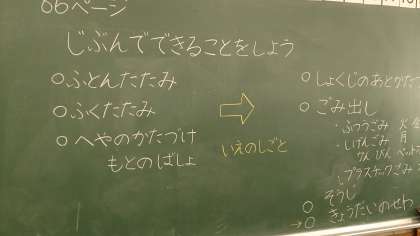 66ページ
じぶんでできることをしよう
○ふとんたたみ
○ふくたたみ
○へやのかたづけ
もとのばしょ
⇨
いえのしごと
○しょくじのあとかた
○ごみ出し
・ふつうごみ 火金
・しげんごみ 月
カン びん ペット
・プラスチックごみ
○そうじ
→○きょうだいのせわ